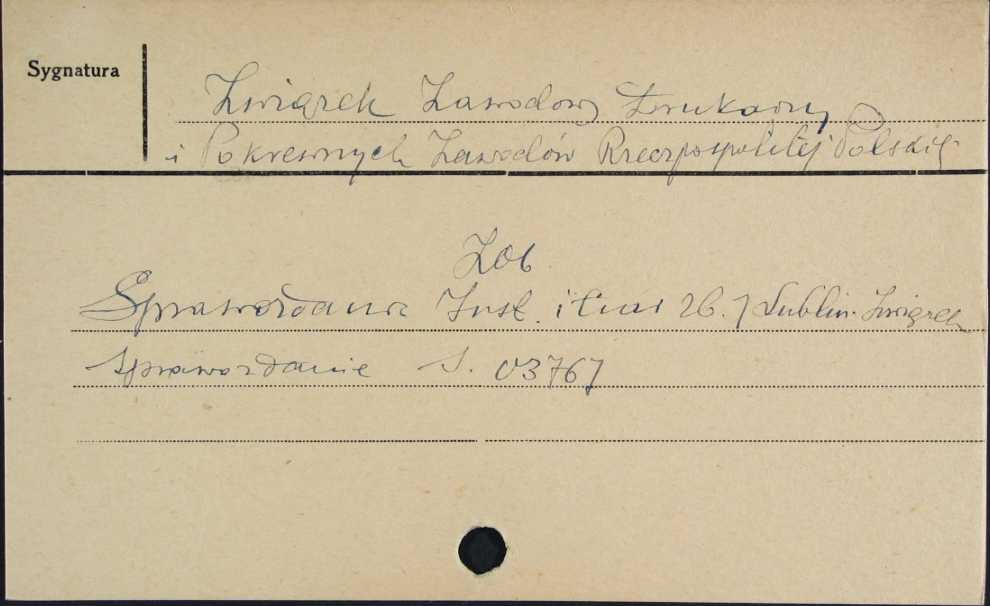 Sygnatura
Związek Zawodowy Drukarzy
i Pokrewnych Zawodów Rzeczpospolitej Polskiej
Zob
Sprawozdania Inst. i Lublin. Związek
Sprawozdanie S. 03767